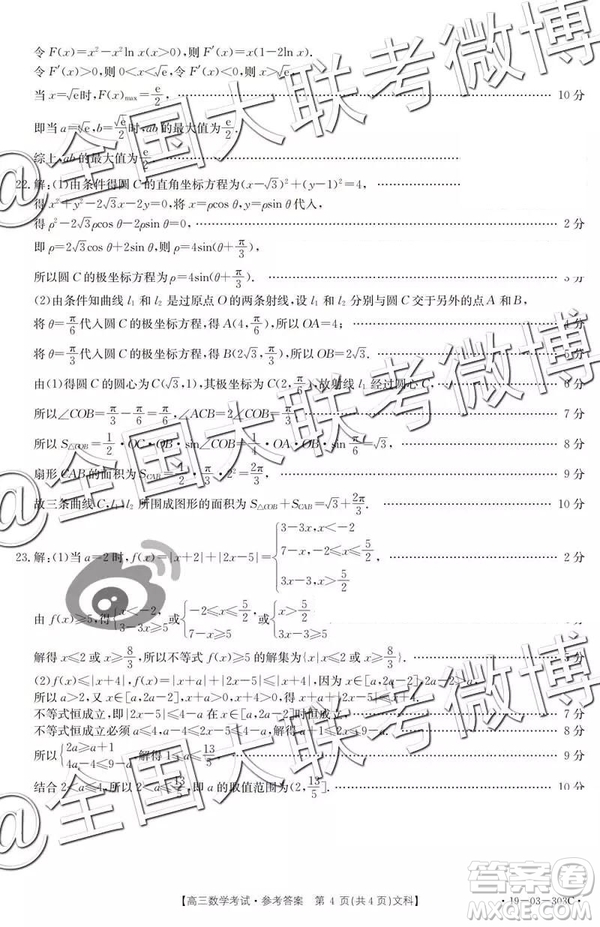 令F(x)=x²-x²ln x(x>0),则F′(x)=x(1-2ln x).
令F′(x)>0,则0<x<√e,令F′(x)<0,则x>√e,
当x=√e时,F(x)max=e/2, 10分
即当a=√e,b=√e/2时,ab的最大值为e/2.
综上,ab的最大值为e/2.
22.解:(1)由条件得圆C的直角坐标方程为(x-√3)²+(y-1)²=4,
得x²+y²-2√3x-2y=0,将x=ρcos θ,y=ρsin θ代入,
得ρ²-2√3ρcos θ 2分
即ρ=2√3cos θ+2sin θ,则ρ=4sin(θ+π/3),
所以圆C的极坐标方程为ρ=4sin(θ+π/3).
(2)由条件知曲线l₁和l₂是过原点O的两条射线,设l₁和l₂分别与圆C交于另外的点A和B,
将θ=π/6代入圆C的极坐标方程,得A(4,π/6),所以OA=4;
将θ=π/3代入圆C的极坐标方程,得B(2√3,π/3),所以OB=2√3. 5分
由(1)得圆C的圆心为C(√3,1),其极坐标为C(2,π/6),故射线l₁经过圆 6分
所以∠COB=π/3-π/6=π/6,∠ACB=2∠COB=π/3. 7分
所以S△COB=1/2·OC·OB·sin∠COB= ·OA·OB·sin 8分
扇形CAB的面积为S ·π/3·2²= 9分
故三条曲线C,l₁,l₂所围成图形的面积为S△COB+SCAB=√3+2π/3. 10分
23.解:(1)当a=2时,f(x)=|x+2|+|2x-5|={3-3x,x<-2 7-x,-2≤x≤5/2 3x-3,x>5/2 2分
由f(x)≥5,得{x<-2, 3-3x≥5或{-2≤x≤5/2, 7-x≥5或
解得x≤2或x≥8/3,所以不等式f(x)≥5的解集为{x|x≤2或x≥8/3}.
(2)f(x)≤|x+4|,f(x)=|x+a|+|2x-5|≤|x+4|,因为x∈[a,2a-2],2a-2>a,
所以a>2,又x∈[a,2a-2],得x+a>0,x+4>0,
不等式恒成立,即|2x-5|≤4-a在x∈[a,2a-2]时恒成立, 7分
不等式恒成立必须a≤4,a-4≤2x-5≤4-a,解得a+1≤2x≤9-a. 8分
所以{2a≥a+1 4a-4≤9-a,解得1≤a≤13/5, 9分
结合2<a≤4,所以2<a≤13/5,即a的取值范围为(2,13/5]. 10分
【高三数学考试·参考答案 第4页(共4页)文科】
·19-03-303C·
@全国大联考微博
@全国大联考微博
@全国大联考微博